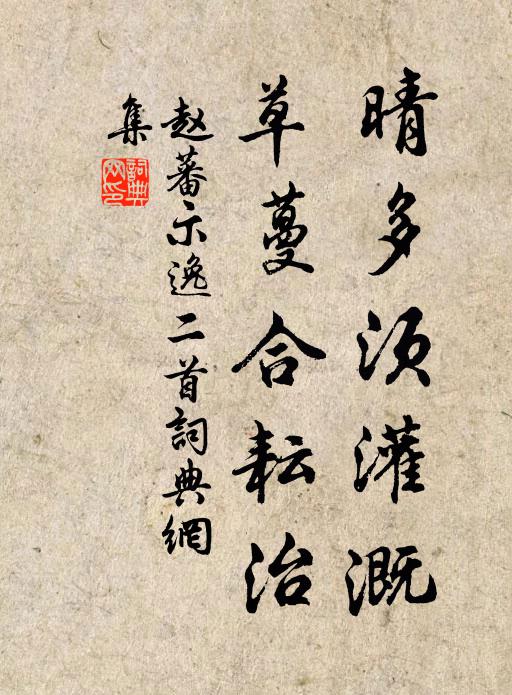 晴多须灌溉
草蔓合耘治
赵蕃示逸二首詞典網
集
詞典网印